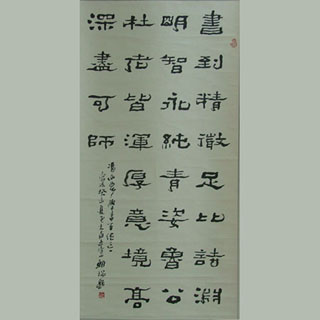 書到精微足比詩淵
明智永純青姿魯公
杜老皆渾厚意境高
深盡可師